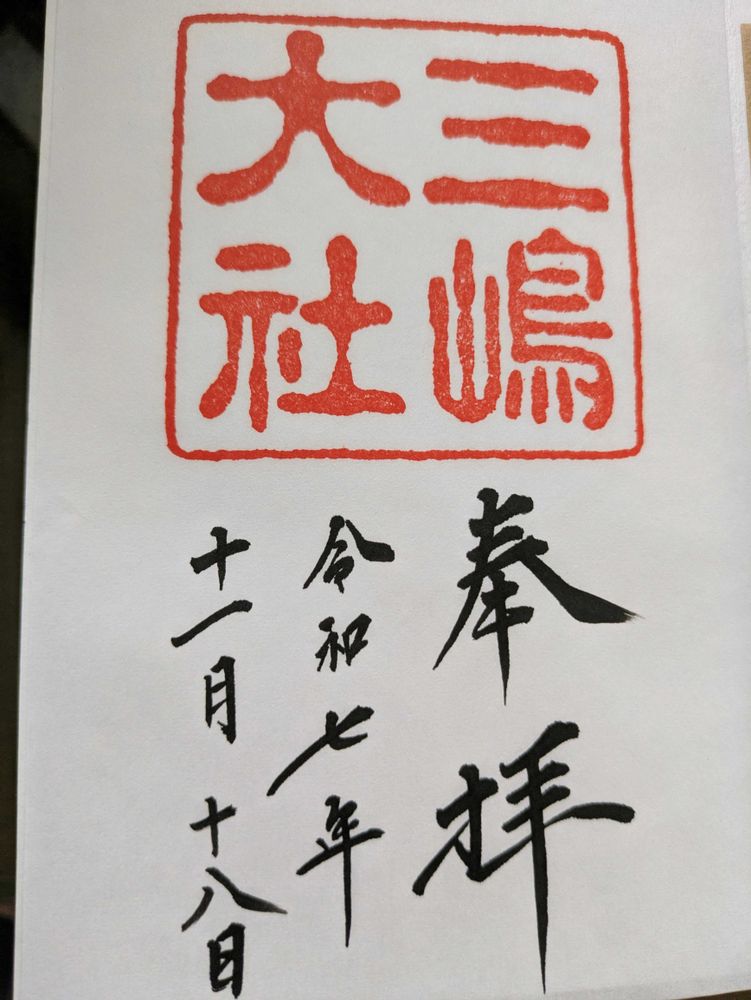 三嶋
大社
奉拝
令和七年
十一月十八日